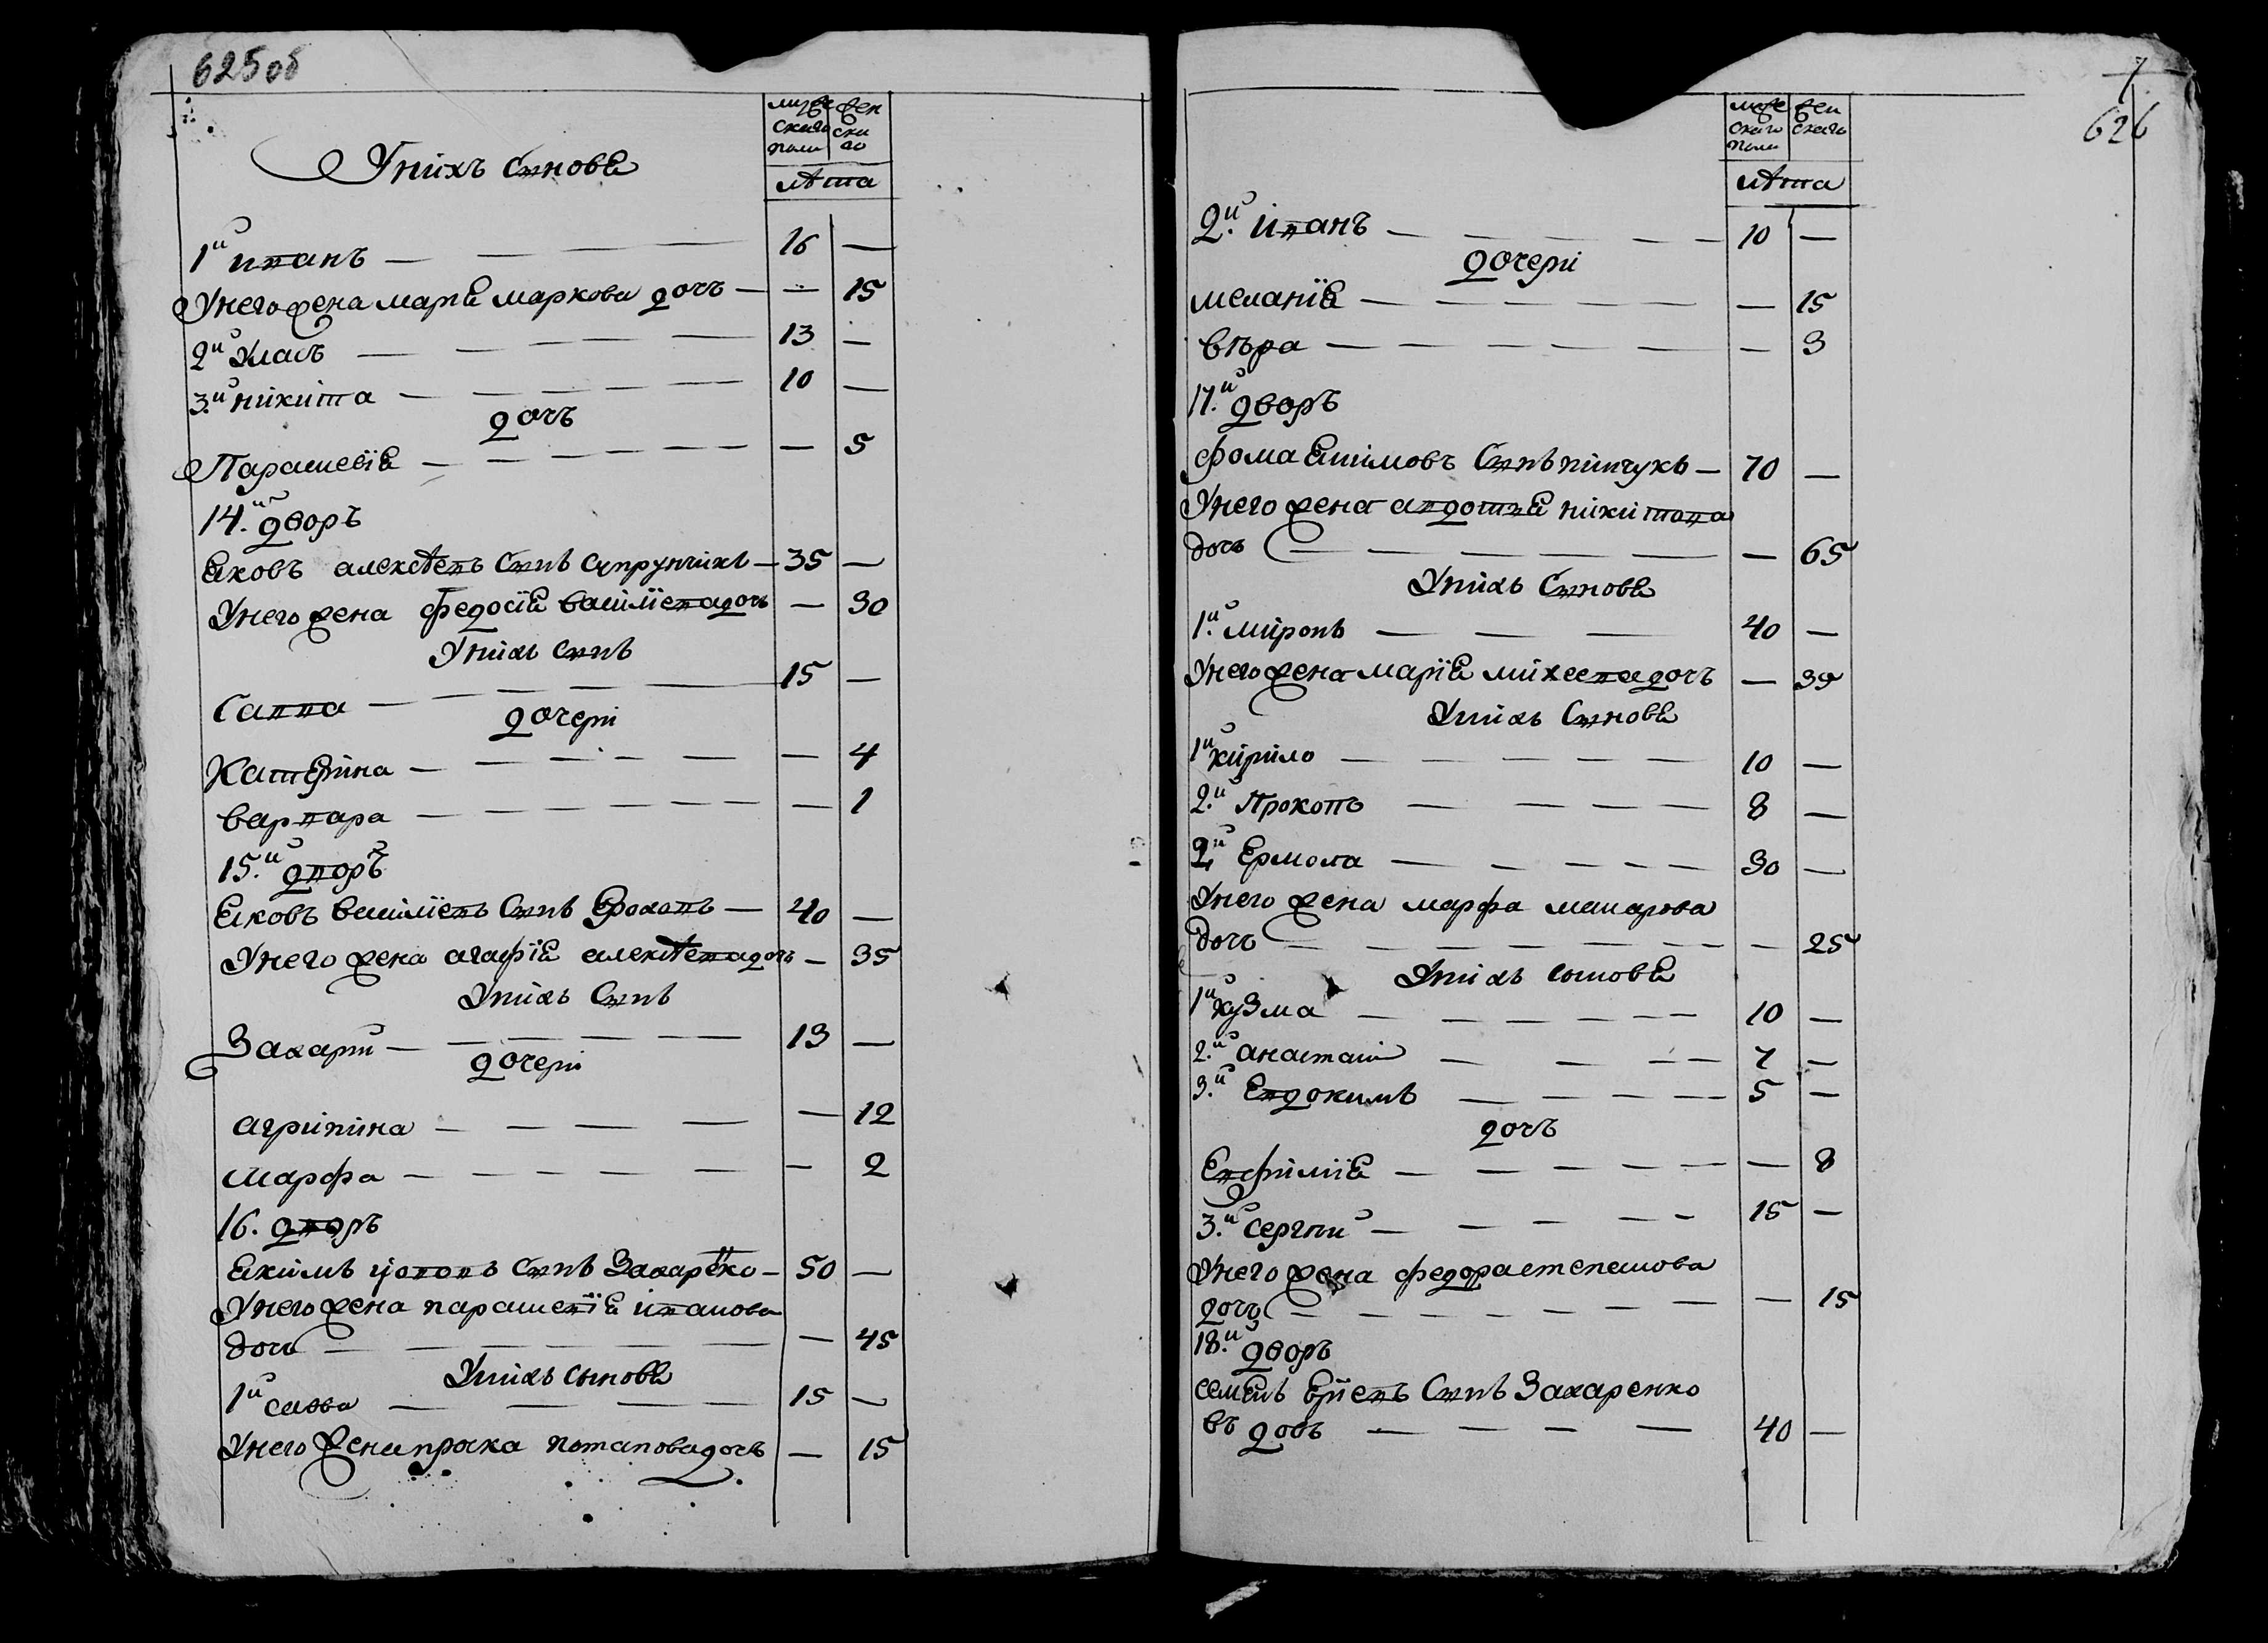 625 об
мужескаго полу
женскаго
лѣта
У нихъ синовѣ
1й иванъ — — — 16 —
У него жена мария маркова дочь — — 15
2й Улась — — — — 13 —
3.й никита — — — — 10 —
дочь
Парасκевїя — — — — — 5
14.й дворъ
Яковъ алексѣевъ Синъ Супрунчикъ — 35 —
У него жена федосїя василїева дочь — 30
У нихъ Синъ
Савва — — — — 15 —
дочери
Катерина — — — — — 4
варвара — — — — — 1
15.й дворъ
Яковъ василїевъ Синъ — 40 —
У него жена агафїя алексѣева дочь — 35
У нихъ Синъ
Захарий — — — — 13 —
дочери
агрипина — — — — — 12
Марфа — — — — — 2
16. дворъ
Якимъ Синъ Захарѣнко — 50 —
У него жена параскевїя иванова
дочь — — — — — 45
У нихъ сынове
1й савва — — — — 15 —
У него жена праска потапова дочь — 15
626
мужескаго полу
женскаго
лѣта
2.й иванъ — — — — 10 —
дочери
меланїя — — — — — 15
вѣра — — — — — 3
17.й дворъ
фома Синъ пинчукъ — 70 —
У него жена авдотия никитова
дочь — — — — — 65
У нихъ Синовѣ
1.й миронъ — — — 40 —
У него жена марїя михеева дочь — 35
У нихъ Синовѣ
1й кирило — — — — 10 —
2.й Прокопъ — — — — 8 —
2й Ермола — — — — 30 —
У него жена марфа макарова
дочь — — — — — 25
У нихъ сыновѣ
1й кузма — — — — 10 —
2.й анастасий — — — — 7 —
3.й Евдокимъ — — — — 5 —
дочь
Евфимїя — — — — — 8
3.й Сергѣй — — — — 15 —
У него жена федора степанова
дочь — — — — — 15
18.й дворъ
семенъ Синъ Захаренко
вдовъ — — — — 40 —